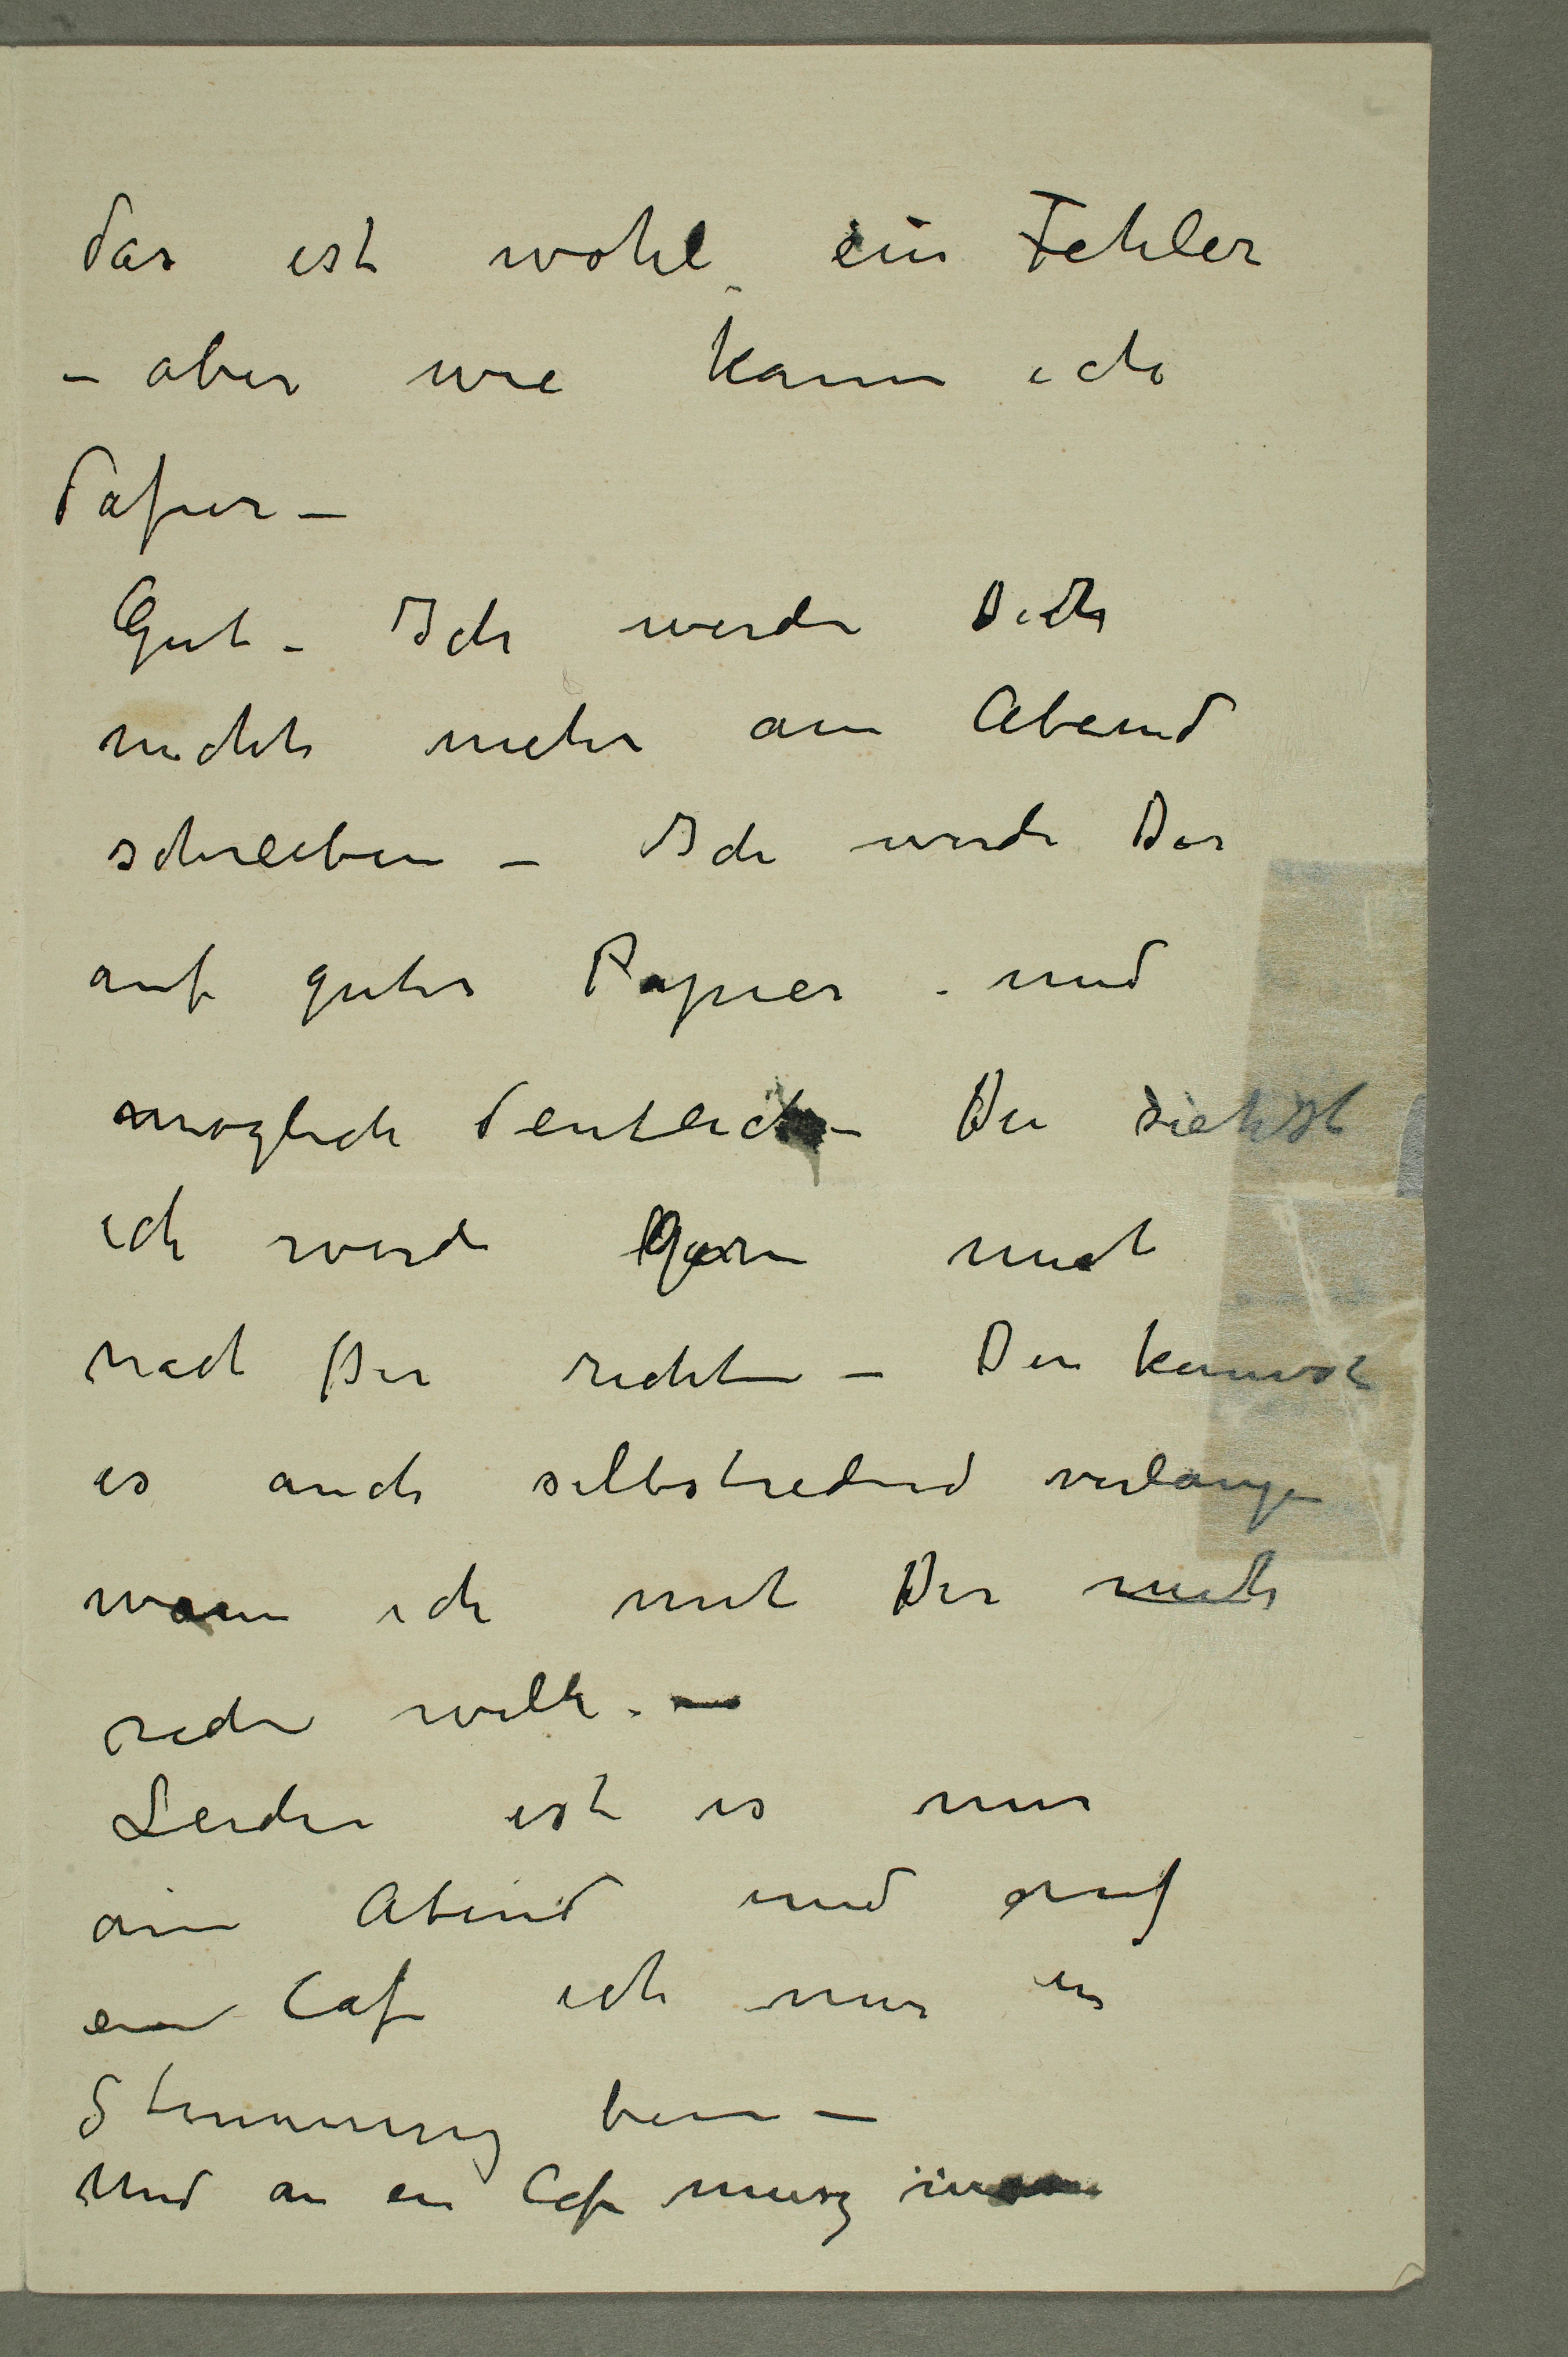 das ist wohl ein Fehler
– aber wie kann ich
dafür –
Gut – Ich werde Dich
nicht mehr am Abend
schreiben – Ich werde Dir
auf guter Papier – und
möglich deutlich – Du siehst
ich werde gern mich
nach Dir richten – Du kannst
es auch selbstredend verlangen
wann ich mit Dir mich
reden will. –
Leider ist es nur
am Abend und auf
ein Cafe ich nur in
Stimmung bin –
Und an ein Cafe musz